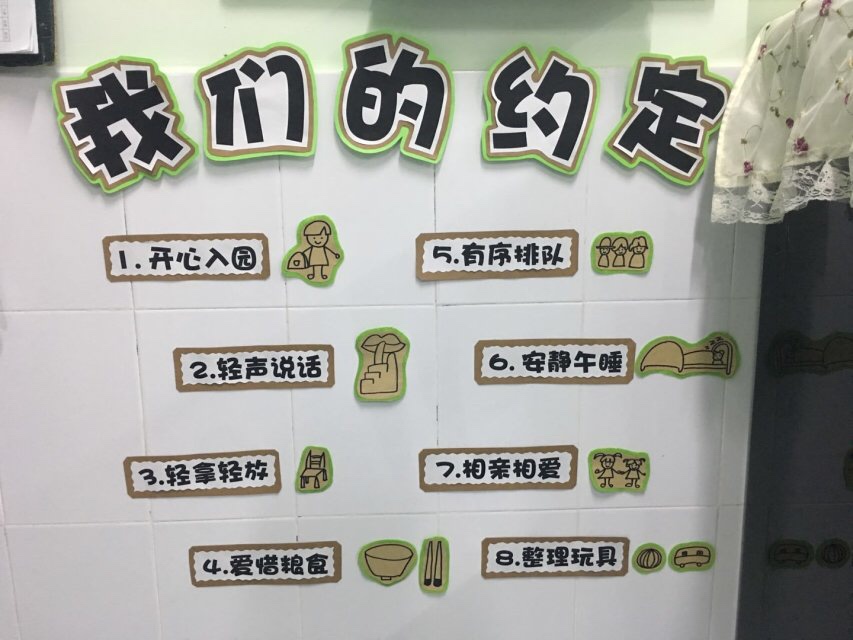 我们的约定
1.开心入园
2.轻声说话
3.轻拿轻放
4.爱惜粮食
5.有序排队
6.安静午睡
7.相亲相爱
8.整理玩具